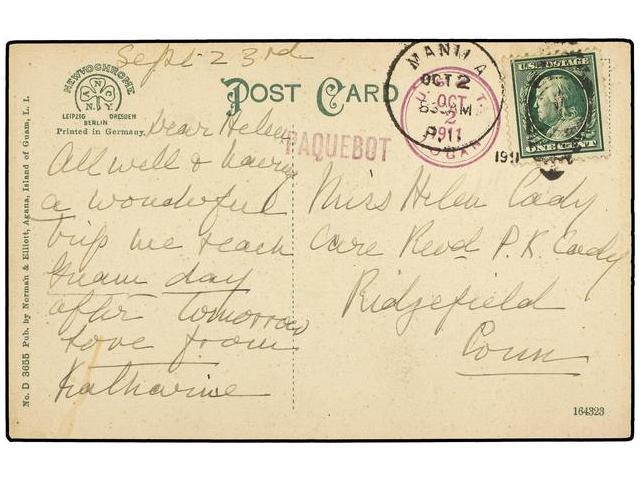 Sept 23rd
NEWVOCHROME
A N C
N.Y.
LEIPZIG DRESDEN
BERLIN
Printed in Germany.
POST CARD
MANILA
OCT 2
AM
P.I.
1911
U.S.
OCT
2
1911
LOGAN
PAQUEBOT
U.S. POSTAGE
ONE CENT
Dear Helen
All well & having
a wonderful
trip we reach
Guam day
after tomorrow
Love from
Katharine
Miss Helen Cady
Care Revd P. K. Cady
Ridgefield
Conn
No. D 3655 Pub. by Norman & Elliott, Agana, Island of Guam, L. I.
164323